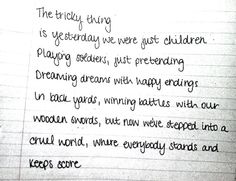 The tricky thing
is yesterday we were just children
Playing soldiers, just pretending
Dreaming dreams with happy endings
In back yards, winning battles with our
wooden swords, but now we've stepped into a
cruel world, where everybody stands and
keeps score